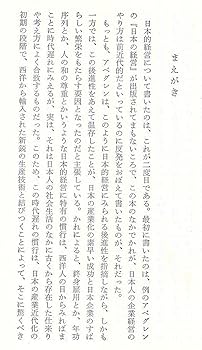 まえがき
日本的経営について書いたのは、これが二度目である。最初に書いたのは、例のアベグレン
の『日本の経営』が出版されてまもないころで、この本のなかでかれが、日本人の企業経営の
やり方は前近代的だといっているのに反発をおぼえて書いたものが、それだった。
もっとも、アベグレンは、このように日本的経営にみられる後進性を指摘しながら、しかも
一方では、この後進性をあえて温存したことが、日本の産業化の素早い成功と日本企業のすば
らしい繁栄をもたらす要因となったのだと主張している。かれによると、終身雇用とか、年功
序列とか、人の和の尊重とかいうような日本的経営に特有の慣行は、西洋人の目からみればま
ことに時代遅れにみえるが、実は、それは日本人の社会生活のなかに古くから存在した仕来り
や考え方によく合致するものだった。このため、この時代遅れの慣行は、日本の産業近代化の
初期の段階で、西洋から輸入された新鋭の生産技術と結びつくことによって、そこに驚くべき